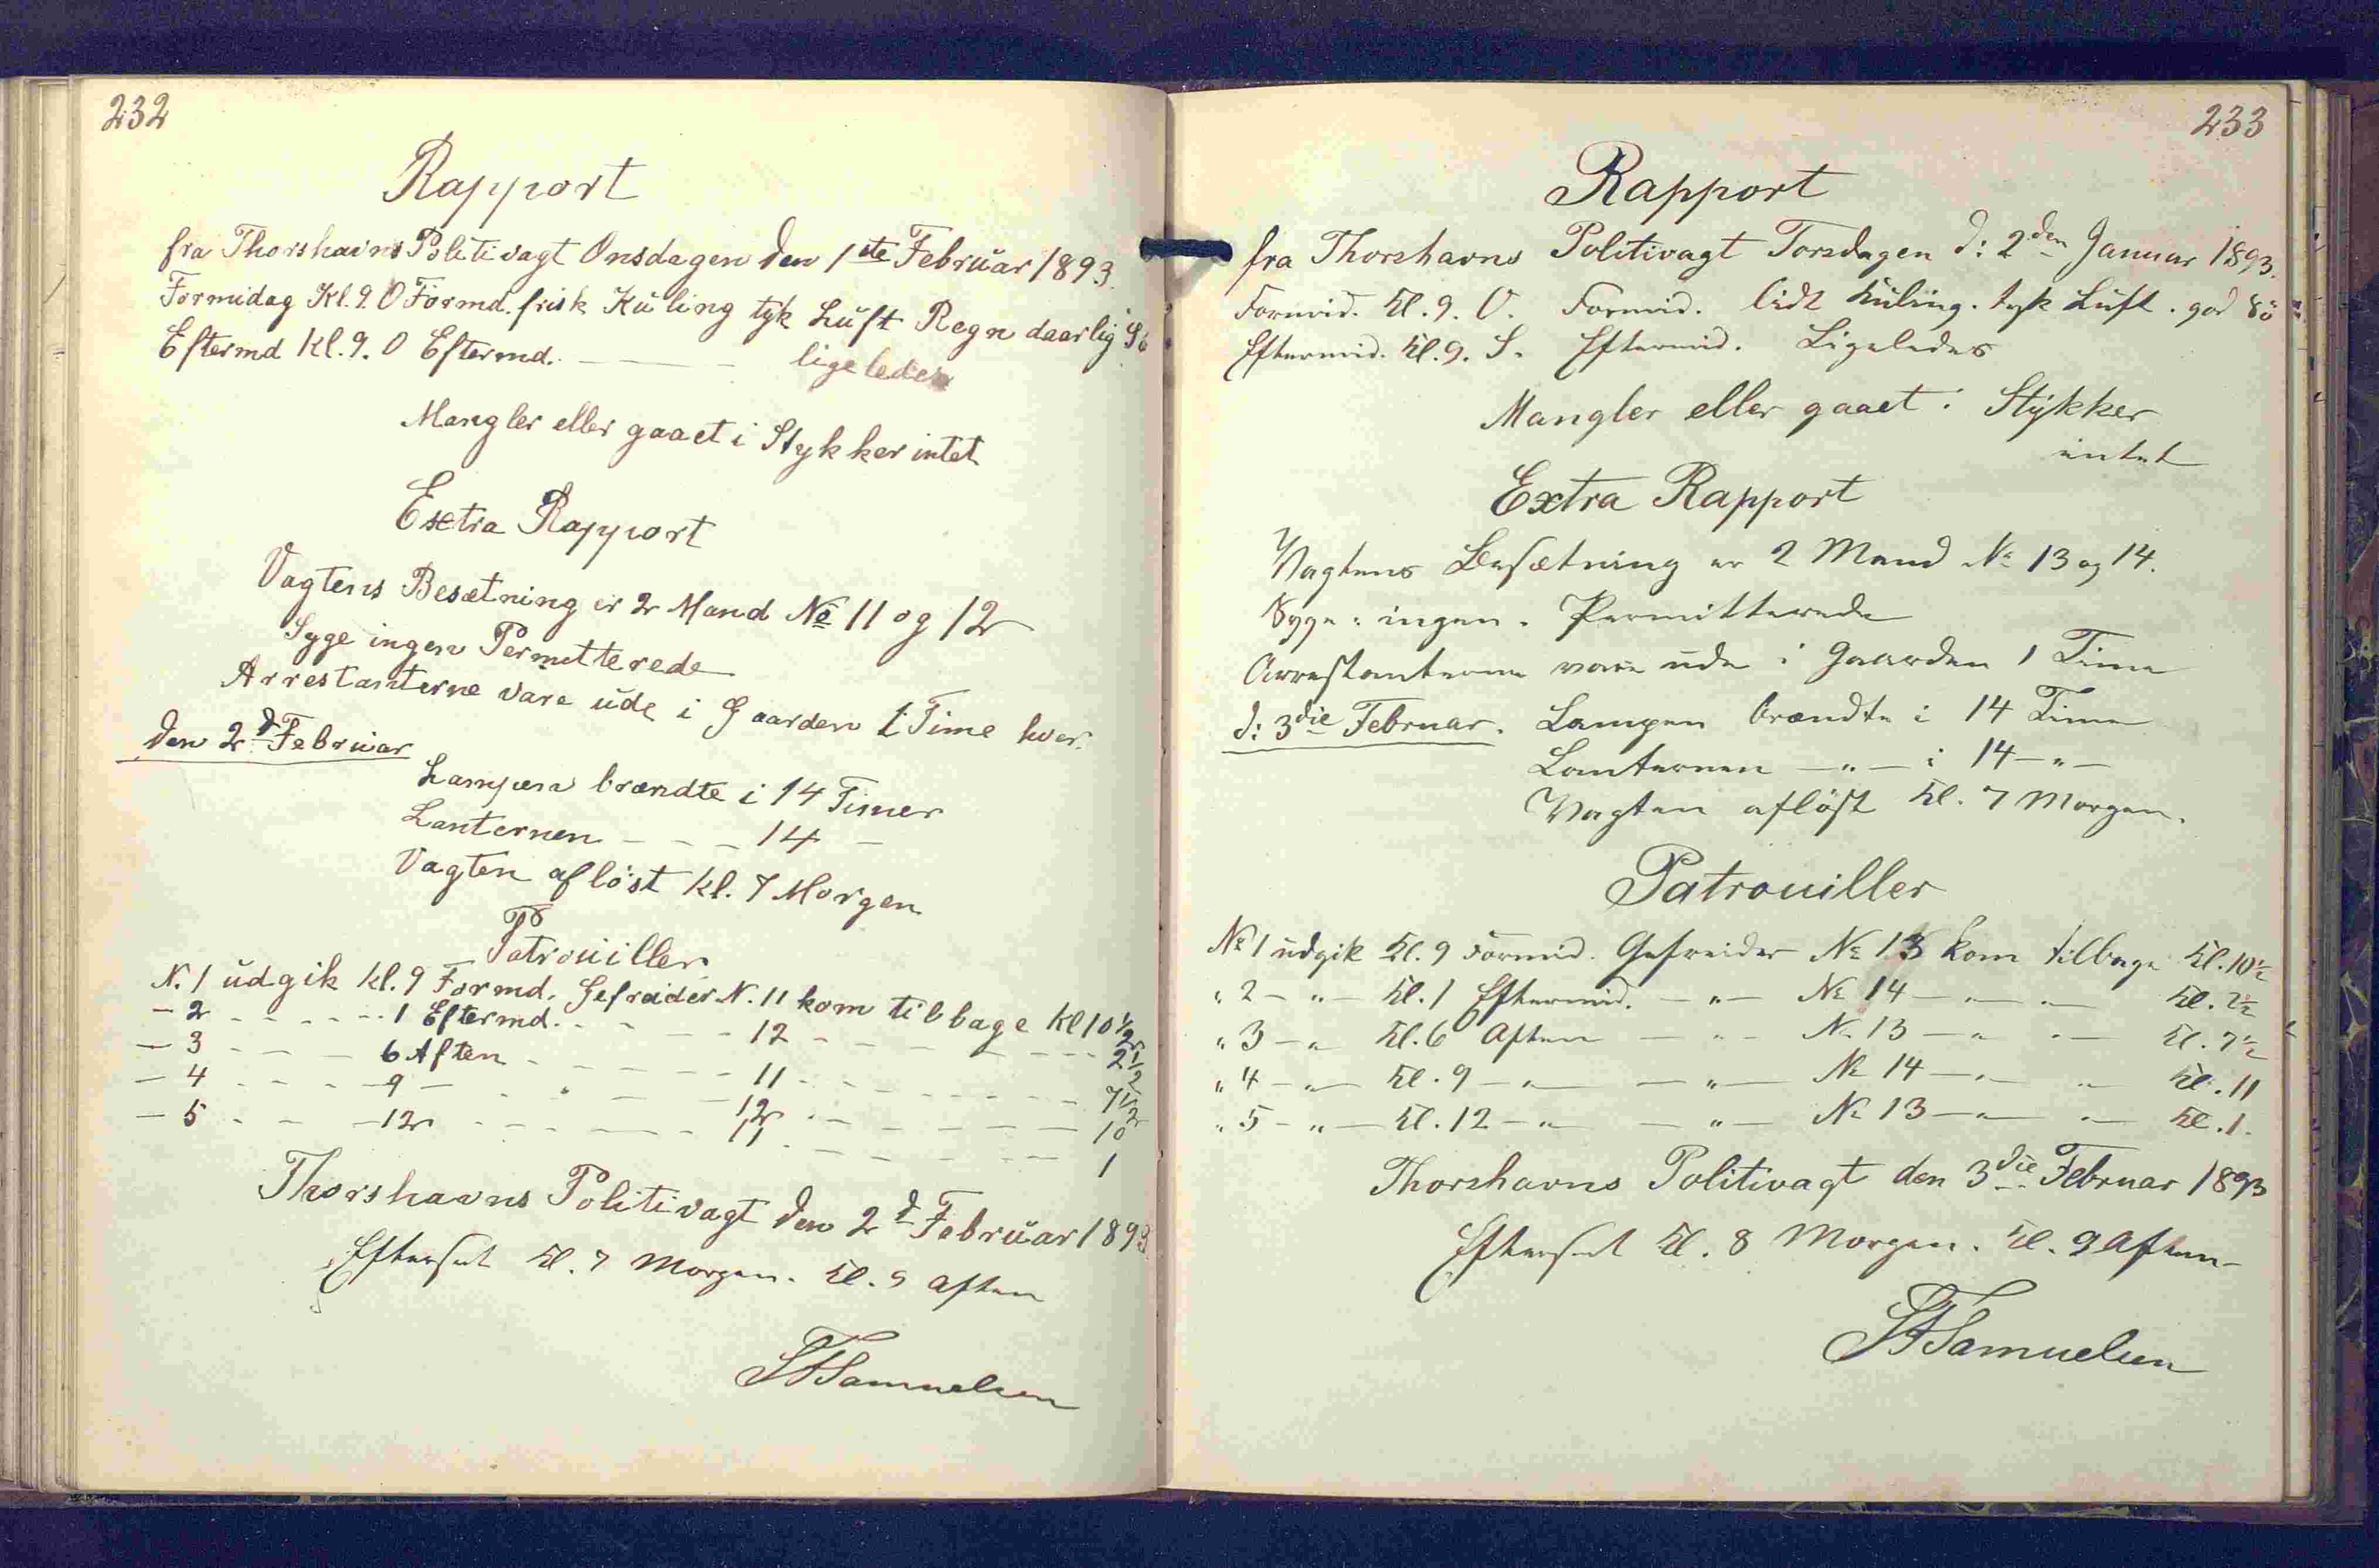 232
Rapport
fra Thorshavns Politivagt Onsdagen den 1ste Februar 1893.
Formidag Kl. 9. O Formd. frisk Kuling tyk Luft Regn daarlig Sö
Eftermd Kl. 9. O Eftermd. — — ligeledes
Mangler eller gaaet i Stykker intet
Extra Rapport
Vagtens Besætning er 2 Mand No 11 og 12
Syge ingen Permitterede
Arrestanterne vare ude i Gaarden 1 Time hver.
den 2d Februar
Lampen brændte i 14 Timer
Lanternen - - - 14 -
Vagten aflöst kl. 7 Morgen
Patrouiller
N. 1 udgik kl. 9 Formd. Gefreider N. 11 kom tilbage kl 10 1/2
- 2 - - - - 1 Eftermd. - - - 12 - - - - 2 1/2
- 3 - - - 6 Aften - - - 11 - - - - 7 1/2
- 4 - - - 9 - " - - 12 - - - - 10
- 5 - - - 12 - - - - 11 - - - - 1
Thorshavns Politivagt den 2d Februar 1893
Efterset Kl. 7 Morgen. Kl. 9 Aften
Samuelsen
233
Rapport
fra Thorshavns Politivagt Torsdagen d: 2den Januar 1893.
Formid. Kl. 9. O. Formid. lidt Kuling. tyk Luft. god Sö
Eftermid. Kl. 9. S. Eftermid. Ligeledes
Mangler eller gaaet i Stykker
intet
Extra Rapport
Vagtens Besætning er 2 Mand No 13 og 14.
Syge: ingen. Permitterede
Arrestanterne vare ude i Gaarden 1 Time
d: 3die Februar. Lampen brændte i 14 Time
Lanternen — " — i 14 — " —
Vagten aflöst Kl. 7 Morgen.
Patrouiller
No 1 udgik Kl. 9 Formid. Gefreider No 13 kom tilbage Kl. 10 1/2
" 2 — " — Kl. 1 Eftermid. — " — No 14 — " — " — Kl. 2 1/2
" 3 — " Kl. 6 Aften — " — No 13 — " — " — Kl. 7 1/2
" 4 — " — Kl. 9 — " — — " — No 14 — " — " Kl. 11
" 5 — " — Kl. 12 — " — — " — No 13 — " — " — Kl. 1.
Thorshavns Politivagt den 3die Februar 1893
Efterset Kl. 8 Morgen. Kl. 9 Aften
Samuelsen